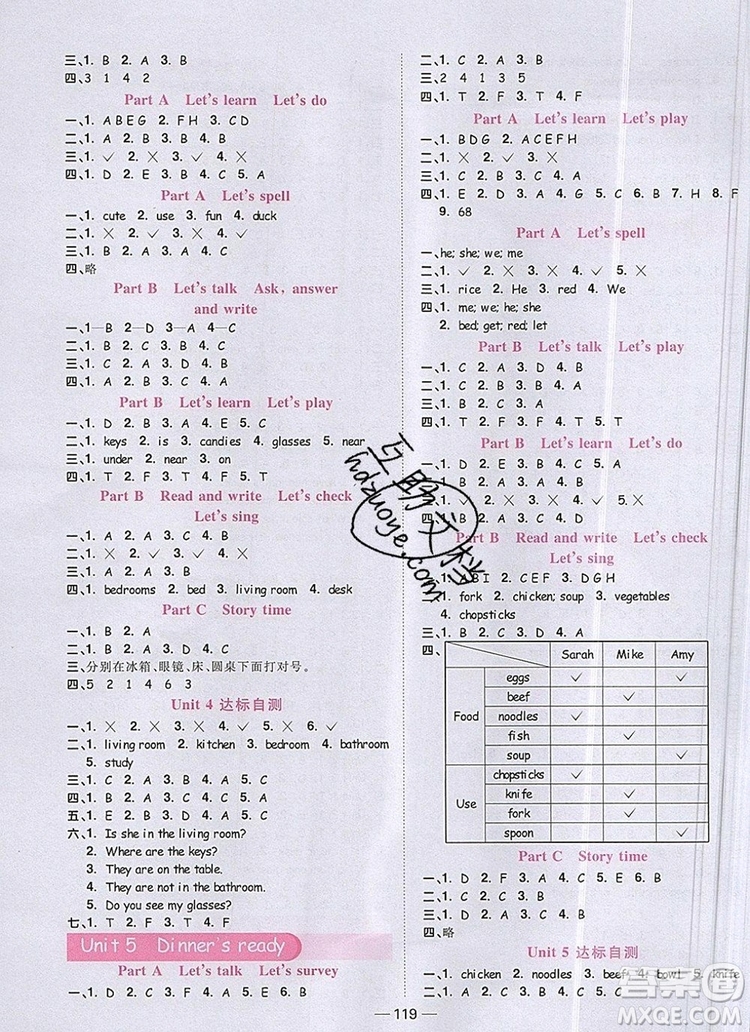 三、1. B 2. A 3. B
四、3 1 4 2
Part A Let's learn Let's do
一、1. ABEG 2. FH 3. CD
二、1. A 2. B 3. B 4. C
三、1. ✓ 2. × 3. × 4. ✓
四、1. D 2. E 3. B 4. C 5. A
Part A Let's spell
一、1. cute 2. use 3. fun 4. duck
二、1. × 2. × 3. ✓ 4. ✓
三、1. B 2. A 3. A 4. C
四、略
Part B Let's talk Ask, answer
and write
一、1—B 2—D 3—A 4—C
二、1. B 2. C 3. B 4. A
三、1. C 2. A 3. D 4. B
四、1. A 2. B 3. A
Part B Let's learn Let's play
一、1. D 2. B 3. A 4. E 5. C
二、1. keys 2. is 3. candies 4. glasses 5. near
三、1. under 2. near 3. on
四、1. T 2. T 3. F 4. F 5. T
Part B Read and write Let's check
Let's sing
一、1. B 2. C 3. B 4. A
二、1. × 2. ✓ 3. ✓ 4. ×
三、1. B 2. A 3. A
四、1. bedrooms 2. bed 3. living room 4. desk
Part C Story time
一、1. B 2. A
二、1. B 2. A 3. D 4. C
三、分别在冰箱、眼镜、床、圆桌下面打对号。
四、5 2 1 4 6 3
Unit 4 达标自测
一、1. × 2. × 3. × 4. ✓ 5. × 6. ✓
二、1. living room 2. kitchen 3. bedroom 4. bathroom
5. study
三、1. C 2. A 3. B 4. A 5. C
四、1. C 2. B 3. B 4. A 5. A
五、1. E 2. C 3. B 4. A 5. D
六、1. Is she in the living room?
2. Where are the keys?
3. They are on the table.
4. They are not in the bathroom.
5. Do you see my glasses?
七、1. T 2. F 3. T 4. F
Unit 5 Dinner's ready
Part A Let's talk Let's survey
一、1. D 2. C 3. A 4. B
二、1. C 2. A 3. B 4. C
三、2 4 1 3 5
四、1. T 2. F 3. T 4. F
Part A Let's learn Let's play
一、1. BDG 2. ACEFH
二、1. × 2. ✓ 3. × 4. ✓
三、1. B 2. B 3. C 4. A
四、1. E 2. D 3. A 4. G 5. C 6. B 7. H 8. F
9. 68
Part A Let's spell
一、he; she; we; me
二、1. ✓ 2. ✓ 3. × 4. ✓ 5. ×
三、1. rice 2. He 3. red 4. We
四、1. me; we; he; she
2. bed; get; red; let
Part B Let's talk Let's play
一、1. C 2. A 3. D 4. B
二、1. B 2. B 3. C 4. B
三、1. B 2. C 3. A
四、1. T 2. F 3. F 4. T 5. T
Part B Let's learn Let's do
一、1. C 2. D 3. B 4. E 5. A
二、1. C 2. D 3. B 4. A
三、1. ✓ 2. × 3. ✓ 4. × 5. ✓
四、1. B 2. A 3. C 4. D
Part B Read and write Let's check
Let's sing
一、1. ABI 2. CEF 3. DGH
二、1. fork 2. chicken; soup 3. vegetables
4. chopsticks
三、1. B 2. C 3. D 4. A
四、
Sarah Mike Amy
Food eggs ✓ ✓
beef ✓
noodles ✓
fish ✓
soup ✓
Use chopsticks ✓
knife ✓
fork ✓
spoon ✓
Part C Story time
一、1. D 2. F 3. A 4. C 5. E 6. B
二、1. C 2. C 3. B
三、1. D 2. F 3. E 4. A 5. C 6. B
四、略
Unit 5 达标自测
一、1. chicken 2. noodles 3. beef 4. bowl 5. knife
二、1. B 2. B 3. A 4. C 5. A
119
互助文档
hdzuoye.com
答案圈
MXQE.COM